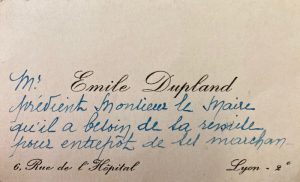 Mr Emile Dupland
prévient Monsieur le Maire
qu'il a besoin de sa remise
pour entrepôt de sel marchan
6, Rue de l'Hôpital Lyon - 2e